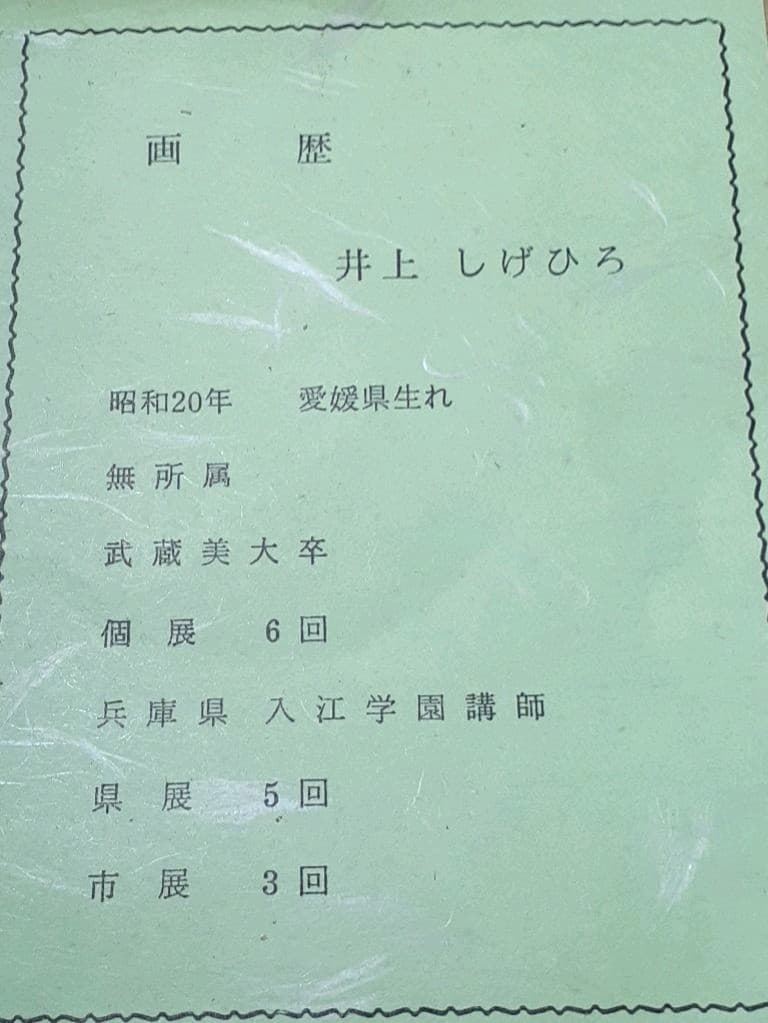 画 歴
井上 しげひろ
昭和20年 愛媛県生れ
無所属
武蔵美大卒
個展 6回
兵庫県 入江学園講師
県展 5回
市展 3回